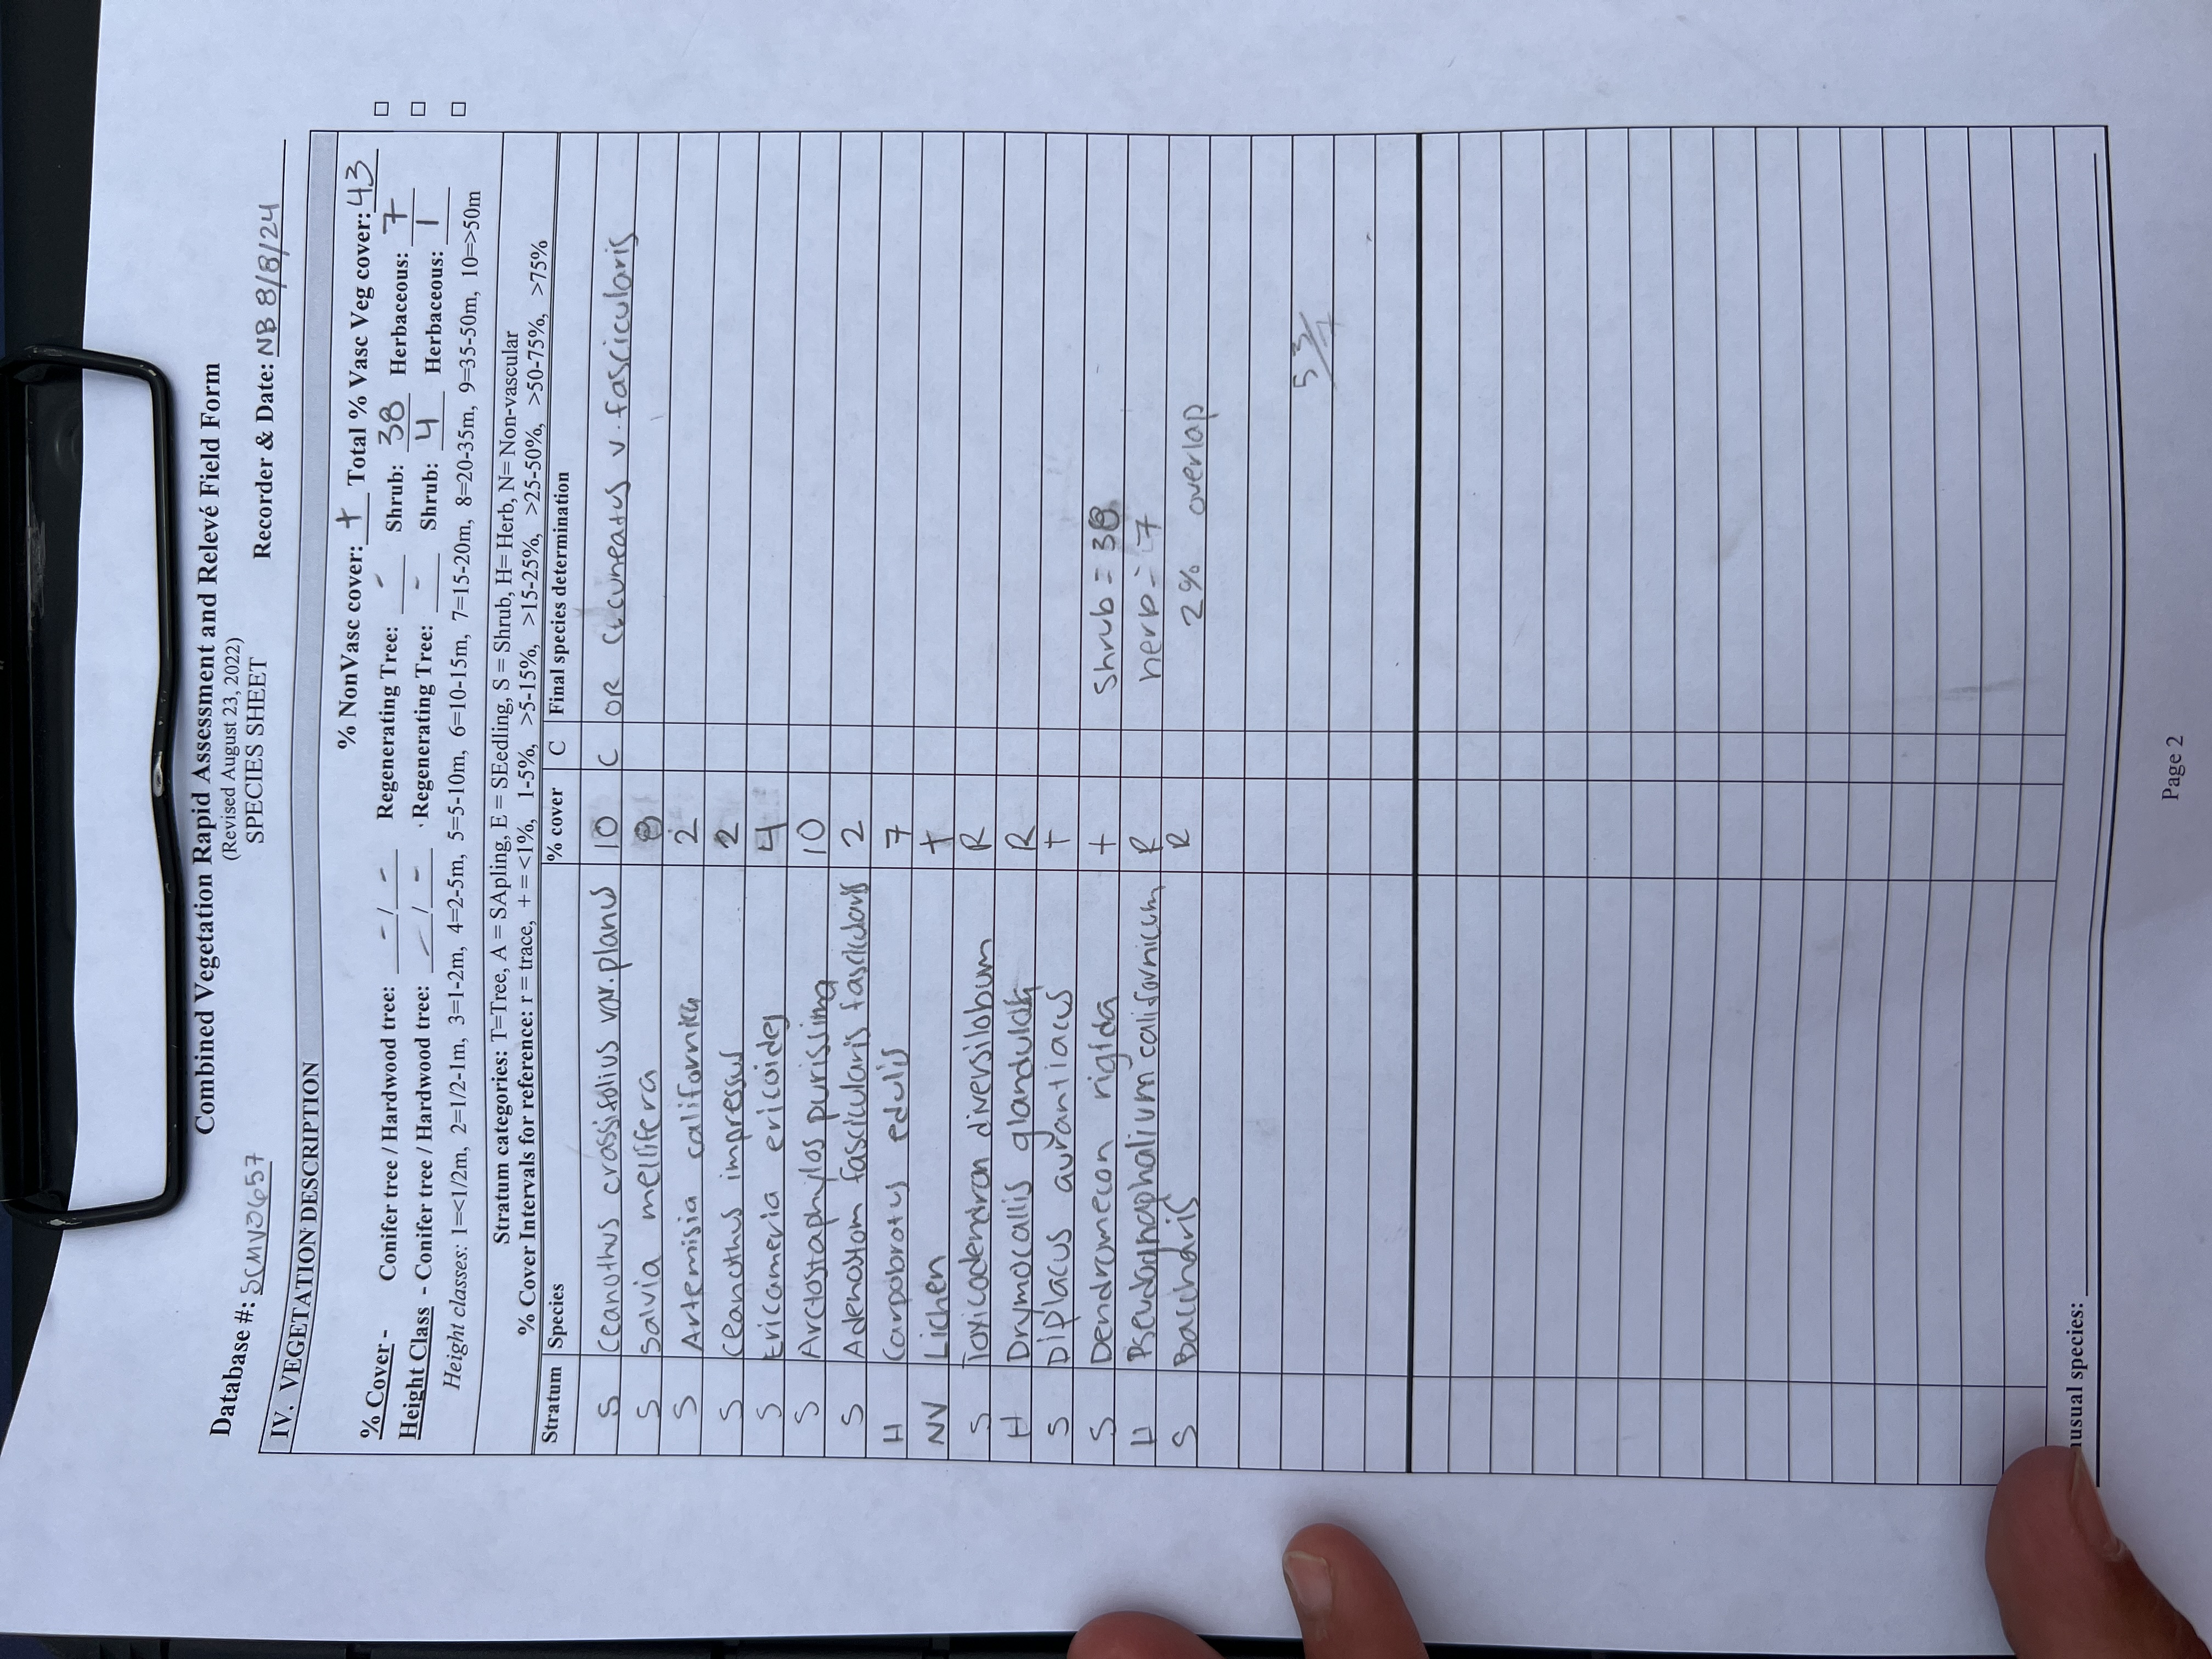 Combined Vegetation Rapid Assessment and Relevé Field Form
(Revised August 23, 2022)
SPECIES SHEET
Database #: Recorder & Date: NB 8/8/24
IV. VEGETATION DESCRIPTION
% NonVasc cover: + Total % Vasc Veg cover: 43
% Cover - Conifer tree / Hardwood tree: - / - Regenerating Tree: - Shrub: 38 Herbaceous: 7 □
Height Class - Conifer tree / Hardwood tree: - / - Regenerating Tree: - Shrub: 4 Herbaceous: 1 □
Height classes: 1=<1/2m, 2=1/2-1m, 3=1-2m, 4=2-5m, 5=5-10m, 6=10-15m, 7=15-20m, 8=20-35m, 9=35-50m, 10=>50m □
Stratum categories: T=Tree, A = SApling, E = SEedling, S = Shrub, H= Herb, N= Non-vascular
% Cover Intervals for reference: r = trace, + = <1%, 1-5%, >5-15%, >15-25%, >25-50%, >50-75%, >75%
Stratum Species % cover C Final species determination
S Ceanothus crassifolius var. planus 10 C OR C. cuneatus v. fascicularis
S Salvia mellifera 8
S Artemisia californica 2
S Ceanothus impressus 2
S Ericameria ericoides 4
S Arctostaphylos purissima 10
S Adenostom fascicularis fascicularis 2
H Carpobrotus edulis 7
NV Lichen +
S Toxicodendron diversilobum R
H Drymocallis glandulosa R
S Diplacus aurantiacus +
S Dendromecon rigida + Shrub = 38
H Pseudognaphalium californicum R herb = 7
S Baccharis R 2% overlap
53/7
usual species:
Page 2